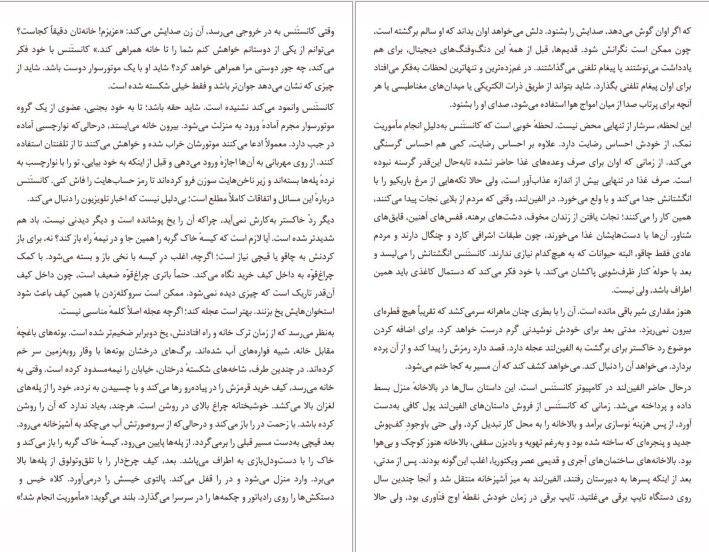 که اگر اوان گوش می‌دهد، صدایش را بشنود. دلش می‌خواهد اوان بداند که او سالم برگشته است،
چون ممکن است نگرانش شود. قدیم‌ها، قبل از همهٔ این دنگ‌وفنگ‌های دیجیتال، برای هم
یادداشت می‌نوشتند یا پیغام تلفنی می‌گذاشتند. در غم‌زده‌ترین و تنهاترین لحظات به‌فکر می‌افتاد
برای اوان پیغام تلفنی بگذارد. شاید بتواند از طریق ذرات الکتریکی یا میدان‌های مغناطیسی یا هر
آنچه برای پرتاب صدا از میان امواج هوا استفاده می‌شود، صدای او را بشنود.
این لحظه، سرشار از تنهایی محض نیست. لحظهٔ خوبی است که کانستَنس به‌دلیل انجام مأموریت
نمک، از خودش احساس رضایت دارد. علاوه بر احساس رضایت، کمی هم احساس گرسنگی
می‌کند. از زمانی که اوان برای صرف وعده‌های غذا حاضر نشده تابه‌حال این‌قدر گرسنه نبوده
است. صرف غذا در تنهایی بیش از اندازه عذاب‌آور است، ولی حالا تکه‌هایی از مرغ باربکیو را با
انگشتانش جدا می‌کند و با ولع می‌خورد. در الفین‌لند، وقتی که مردم از بلایی نجات پیدا می‌کنند،
همین کار را می‌کنند؛ نجات یافتن از زندان مخوف، دشت‌های برهنه، قفس‌های آهنین، قایق‌های
شناور. آن‌ها با دست‌هایشان غذا می‌خورند، چون طبقات اشرافی کارد و چنگال دارند و مردم
عادی فقط چاقو، البته حیوانات که به هیچ‌کدام نیازی ندارند. کانستَنس انگشتانش را می‌لیسد و
بعد با حولهٔ کنار ظرف‌شویی پاکشان می‌کند. با خود فکر می‌کند که دستمال کاغذی باید همین
اطراف باشد، ولی نیست.
هنوز مقداری شیر باقی مانده است. آن را با بطری چنان ماهرانه سرمی‌کشد که تقریباً هیچ قطره‌ای
بیرون نمی‌ریزد. مدتی بعد برای خودش نوشیدنی گرم درست خواهد کرد. برای اضافه کردن
موضوع رد خاکستر برای برگشت به الفین‌لند عجله دارد. قصد دارد رمزش را پیدا کند و از آن پرده
بردارد. می‌خواهد آن را دنبال کند. می‌خواهد کشف کند که آن مسیر به کجا ختم می‌شود.
درحال حاضر الفین‌لند در کامپیوتر کانستَنس است. این داستان سال‌ها در بالاخانهٔ منزل بسط
داده و پرداخته می‌شد. زمانی که کانستَنس از فروش داستان‌های الفین‌لند پول کافی به‌دست
آورد، از پس هزینهٔ نوسازی برآمد و بالاخانه را به محل کار تبدیل کرد، ولی حتی باوجود کف‌پوش
جدید و پنجره‌ای که ساخته شده بود و به‌رغم تهویه و بادبزن سقفی، بالاخانه هنوز کوچک و بی‌هوا
بود. بالاخانه‌های ساختمان‌های آجری و قدیمی عصر ویکتوریا، اغلب این‌گونه بودند. پس از مدتی،
بعد از اینکه پسرها به دبیرستان رفتند، الفین‌لند به میز آشپزخانه منتقل شد و آنجا چندین سال
روی دستگاه تایپ برقی می‌غلتید. تایپ برقی در زمان خودش نقطهٔ اوج فنّاوری بود، ولی حالا
وقتی کانستَنس به در خروجی می‌رسد، آن زن صدایش می‌کند: «عزیزم! خانه‌تان دقیقاً کجاست؟
می‌توانم از یکی از دوستانم خواهش کنم شما را تا خانه همراهی کند.» کانستَنس با خود فکر
می‌کند، چه جور دوستی مرا همراهی خواهد کرد؟ شاید او با یک موتورسوار دوست باشد. شاید از
چیزی که نشان می‌دهد جوان‌تر باشد و فقط خیلی شکسته شده است.
کانستَنس وانمود می‌کند نشنیده است. شاید حقه باشد؛ تا به خود بجنبی، عضوی از یک گروه
موتورسوار مجرم آمادهٔ ورود به منزلت می‌شود. بیرون خانه می‌ایستد، درحالی‌که نوارچسبی آماده
در جیب دارد. معمولاً ادعا می‌کنند موتورشان خراب شده و خواهش می‌کنند تا از تلفنتان استفاده
کنند. از روی مهربانی به آن‌ها اجازهٔ ورود می‌دهی و قبل از اینکه به خود بیایی، تو را با نوارچسب به
نردهٔ پله‌ها بسته‌اند و زیر ناخن‌هایت سوزن فرو کرده‌اند تا رمز حساب‌هایت را فاش کنی. کانستَنس
دربارهٔ این مسائل و اتفاقات کاملاً مطلع است؛ بی‌دلیل نیست که اخبار تلویزیون را دنبال می‌کند.
دیگر ردّ خاکستر به‌کارش نمی‌آید، چراکه آن را یخ پوشانده است و دیگر دیدنی نیست. باد هم
شدیدتر شده است. آیا لازم است که کیسهٔ خاک گربه را همین جا و در نیمهٔ راه باز کند؟ نه، برای باز
کردنش به چاقو یا قیچی نیاز است؛ اگرچه، اغلب در کیسه با نخی باز و بسته می‌شود. با کمک
چراغ‌قوّه به داخل کیف خرید نگاه می‌کند. حتماً باتری چراغ‌قوّه ضعیف است، چون داخل کیف
آن‌قدر تاریک است که چیزی دیده نمی‌شود. ممکن است سروکله‌زدن با همین کیف باعث شود
استخوان‌هایش یخ بزنند. بهتر است عجله کند؛ اگرچه عجله اصلاً کلمهٔ مناسبی نیست.
به‌نظر می‌رسد که از زمان ترک خانه و راه افتادنش، یخ دوبرابر ضخیم‌تر شده است. بوته‌های باغچهٔ
مقابل خانه، شبیه فواره‌های آب شده‌اند. برگ‌های درخشان بوته‌ها با وقار روبه‌زمین سر خم
کرده‌اند. در چندین طرف، شاخه‌های شکستهٔ درختان، خیابان را نیمه‌مسدود کرده است. وقتی به
خانه می‌رسد، کیف خرید قرمزش را در پیاده‌رو رها می‌کند و با چسبیدن به نرده، خود را از پله‌های
لغزان بالا می‌کشد. خوشبختانه چراغ بالای در روشن است. هرچند، به‌یاد ندارد که آن را روشن
کرده باشد. با زحمت در را باز می‌کند و درحالی‌که از سروصورتش آب می‌چکد به آشپزخانه می‌رود.
بعد قیچی به‌دست مسیر قبلی را برمی‌گردد. از پله‌ها پایین می‌رود، کیسهٔ خاک گربه را باز می‌کند و
خاک را با دست‌ودل‌بازی به اطراف می‌پاشد. بعد، کیف چرخ‌دار را با تلق‌وتولوق از پله‌ها بالا
می‌برد. وارد منزل می‌شود و در را قفل می‌کند. پالتوی خیسش را درمی‌آورد. کلاه خیس و
دستکش‌ها را روی رادیاتور و چکمه‌ها را در سرسرا می‌گذارد. بلند می‌گوید: «مأموریت انجام شد!»